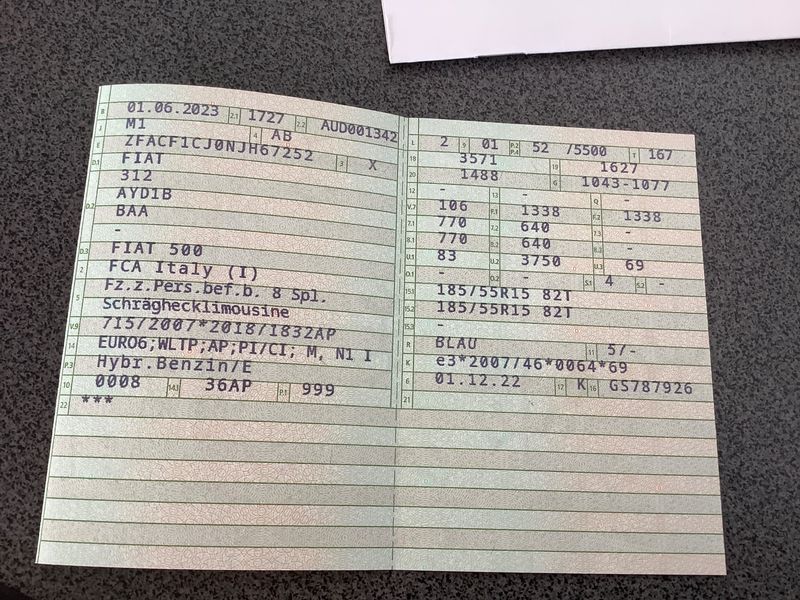 B 01.06.2023 2.1 1727 2.2 AUD001342
J M1 4 AB
E ZFACF1CJ0NJH67252 3 X
D.1 FIAT
312
D.2 AYD1B
BAA
-
D.3 FIAT 500
2 FCA Italy (I)
5 Fz.z.Pers.bef.b. 8 Spl.
Schräghecklimousine
V.9 715/2007*2018/1832AP
14 EURO6;WLTP;AP;PI/CI; M, N1 I
P.3 Hybr.Benzin/E
10 0008 14.1 36AP P.1 999
22 ***
L 2 9 01 P.2 P.4 52 /5500 T 167
18 3571 19 1627
20 1488 G 1043-1077
12 - 13 - Q -
V.7 106 F.1 1338 F.2 1338
7.1 770 7.2 640 7.3 -
8.1 770 8.2 640 8.3 -
U.1 83 U.2 3750 U.3 69
O.1 - O.2 - S.1 4 S.2 -
15.1 185/55R15 82T
15.2 185/55R15 82T
15.3 -
R BLAU 11 5/-
K e3*2007/46*0064*69
6 01.12.22 17 K 16 GS787926
21